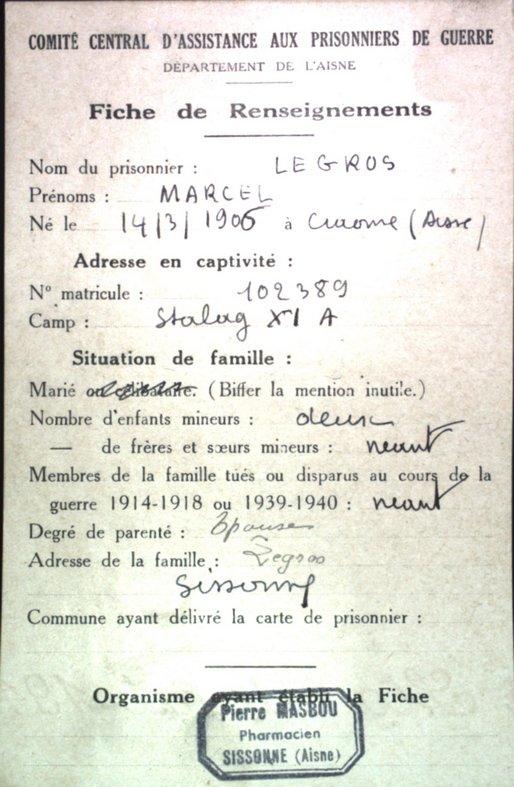 COMITÉ CENTRAL D'ASSISTANCE AUX PRISONNIERS DE GUERRE
DÉPARTEMENT DE L'AISNE
Fiche de Renseignements
Nom du prisonnier : LEGROS
Prénoms : MARCEL
Né le 14/3/1906 à Craonne (Aisne)
Adresse en captivité :
N° matricule : 102389
Camp : Stalag XI A
Situation de famille :
Marié ou célibataire. (Biffer la mention inutile.)
Nombre d'enfants mineurs : deux
— de frères et sœurs mineurs : neant
Membres de la famille tués ou disparus au cours de la
guerre 1914-1918 ou 1939-1940 : neant
Degré de parenté : Epouse
Adresse de la famille : Legros
Sissonne
Commune ayant délivré la carte de prisonnier :
Organisme ayant établi la Fiche
Pierre MASBOU
Pharmacien
SISSONNE (Aisne)